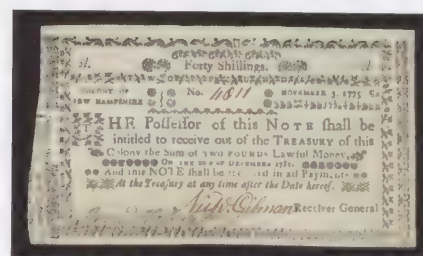 Forty Shillings.
COLONY OF
NEW HAMPSHIRE
No. 4811
NOVEMBER 3. 1775
THE Possessor of this NOTE shall be
intitled to receive out of the TREASURY of this
Colony the Sum of TWO POUNDS Lawful Money,
ON THE 20 OF DECEMBER
And this NOTE shall be received in all Payments
At the Treasury at any time after the Date hereof.
Gilman Receiver General